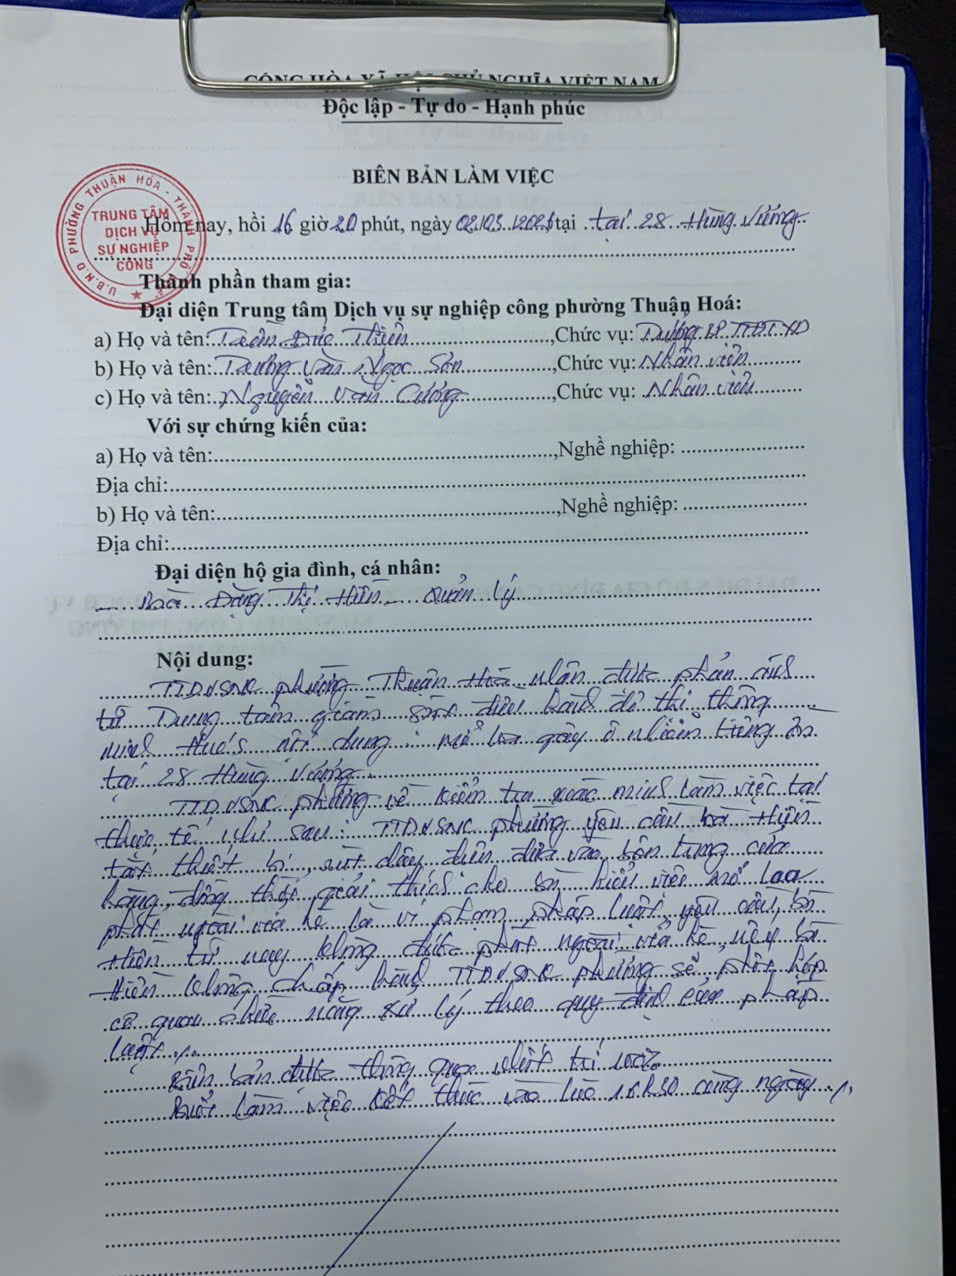 CỘNG HÒA XÃ HỘI CHỦ NGHĨA VIỆT NAM
Độc lập - Tự do - Hạnh phúc
BIÊN BẢN LÀM VIỆC
U.B.N.D PHƯỜNG THUẬN HÓA - THÀNH PHỐ
TRUNG TÂM
DỊCH VỤ
SỰ NGHIỆP
CÔNG
Hôm nay, hồi 16 giờ 20 phút, ngày tại tại 28 Hùng Vương
Thành phần tham gia:
Đại diện Trung tâm Dịch vụ sự nghiệp công phường Thuận Hoá:
a) Họ và tên: Đức Thiện, Chức vụ:
b) Họ và tên: Trương Văn Ngọc Sơn, Chức vụ: Nhân viên
c) Họ và tên: Nguyễn Văn Cường, Chức vụ: Nhân viên
Với sự chứng kiến của:
a) Họ và tên:, Nghề nghiệp:
Địa chỉ:
b) Họ và tên:, Nghề nghiệp:
Địa chỉ:
Đại diện hộ gia đình, cá nhân:
Bà Đặng Thị Hiền Quản lý
Nội dung:
TTDVSNC phường Thuận Hóa nhận được phản ánh
từ Trung tâm giám sát điều hành đô thị thông
minh Huế nội dung: mở loa gây ô nhiễm tiếng ồn
tại 28 Hùng Vương.
TTDVSNC phường về kiểm tra xác minh làm việc tại
thực tế như sau: TTDVSNC phường yêu cầu bà Hiền
tắt thiết bị, rút dây điện đưa vào bên trong cửa
hàng, đồng thời giải thích cho bà hiểu việc mở loa
phát ngoài vỉa hè là vi phạm pháp luật, yêu cầu bà
Hiền từ nay không được phát ngoài vỉa hè, nếu bà
Hiền không chấp hành TTDVSNC phường sẽ phối hợp
cơ quan chức năng xử lý theo quy định của pháp
luật./.
Biên bản được thông qua nhất trí 100%
Buổi làm việc kết thúc vào lúc 16h30 cùng ngày./.